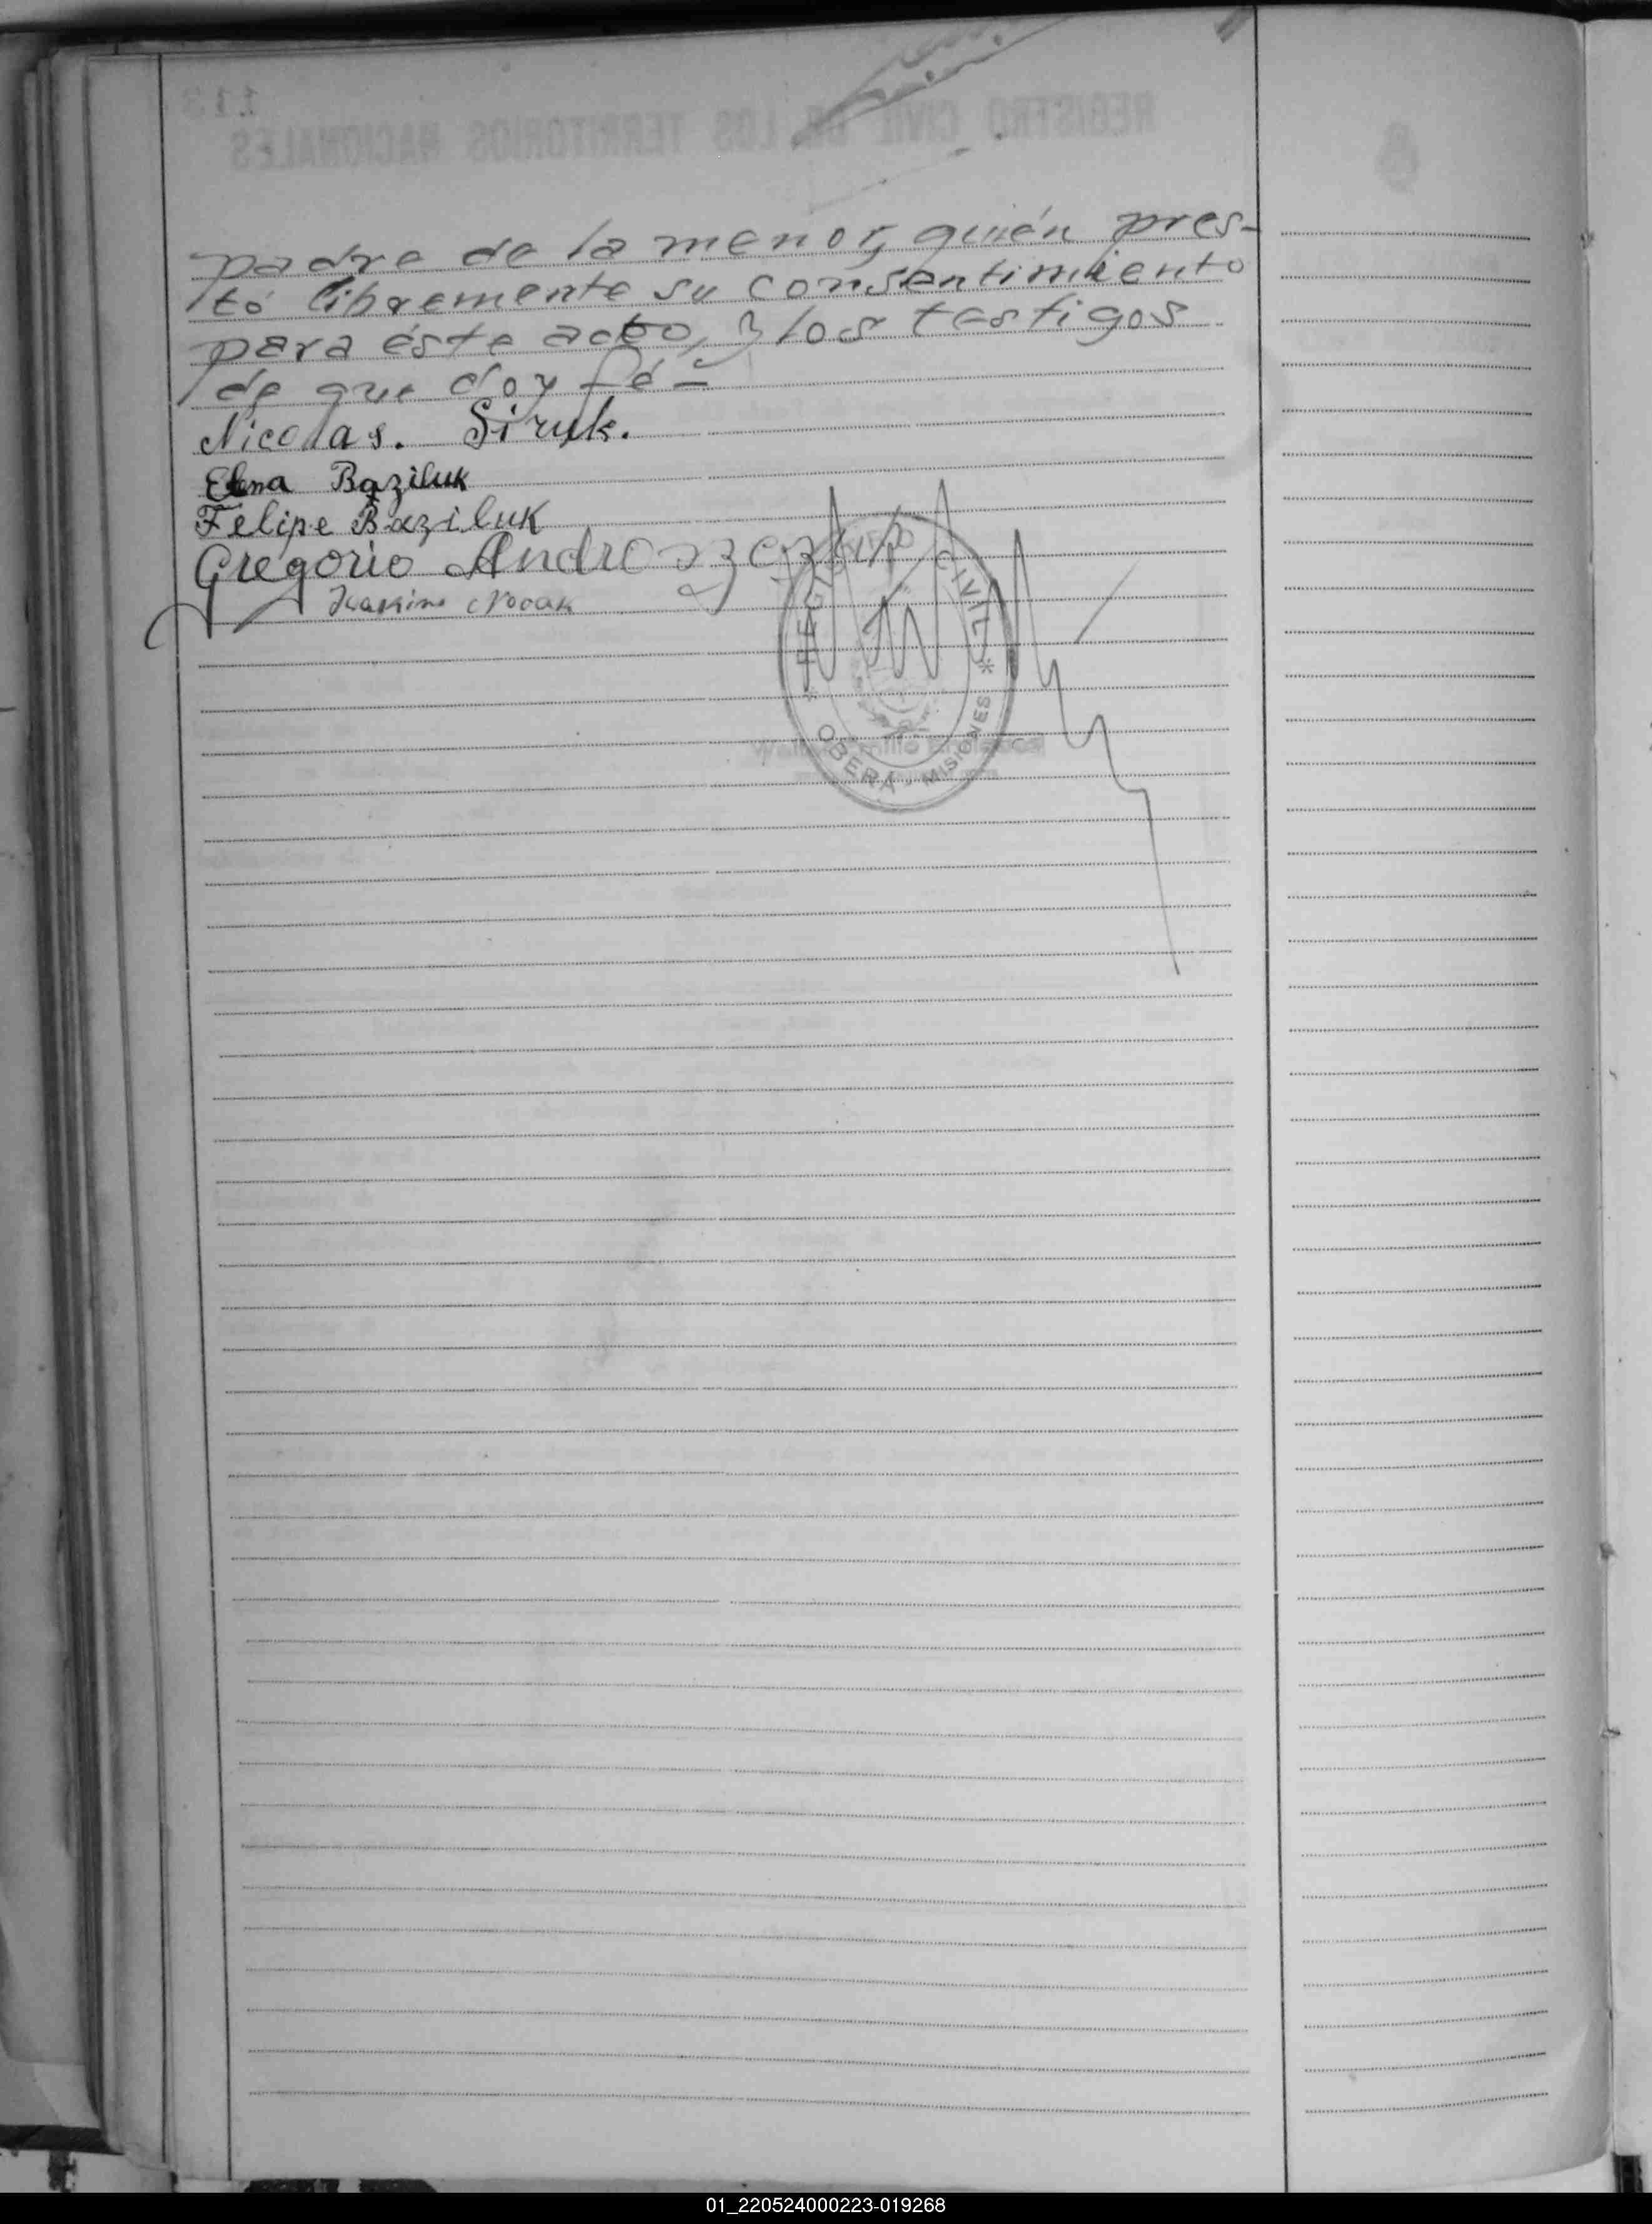 padre de la menor, quién pres-
tó libremente su consentimiento
para éste acto, y los testigos
de que doy fé-
Nicolas. Siruk.
Elena Baziluk
Felipe Baziluk
Gregorio
Novak
REGISTRO CIVIL
OBERÁ - MISIONES
01_220524000223-019268